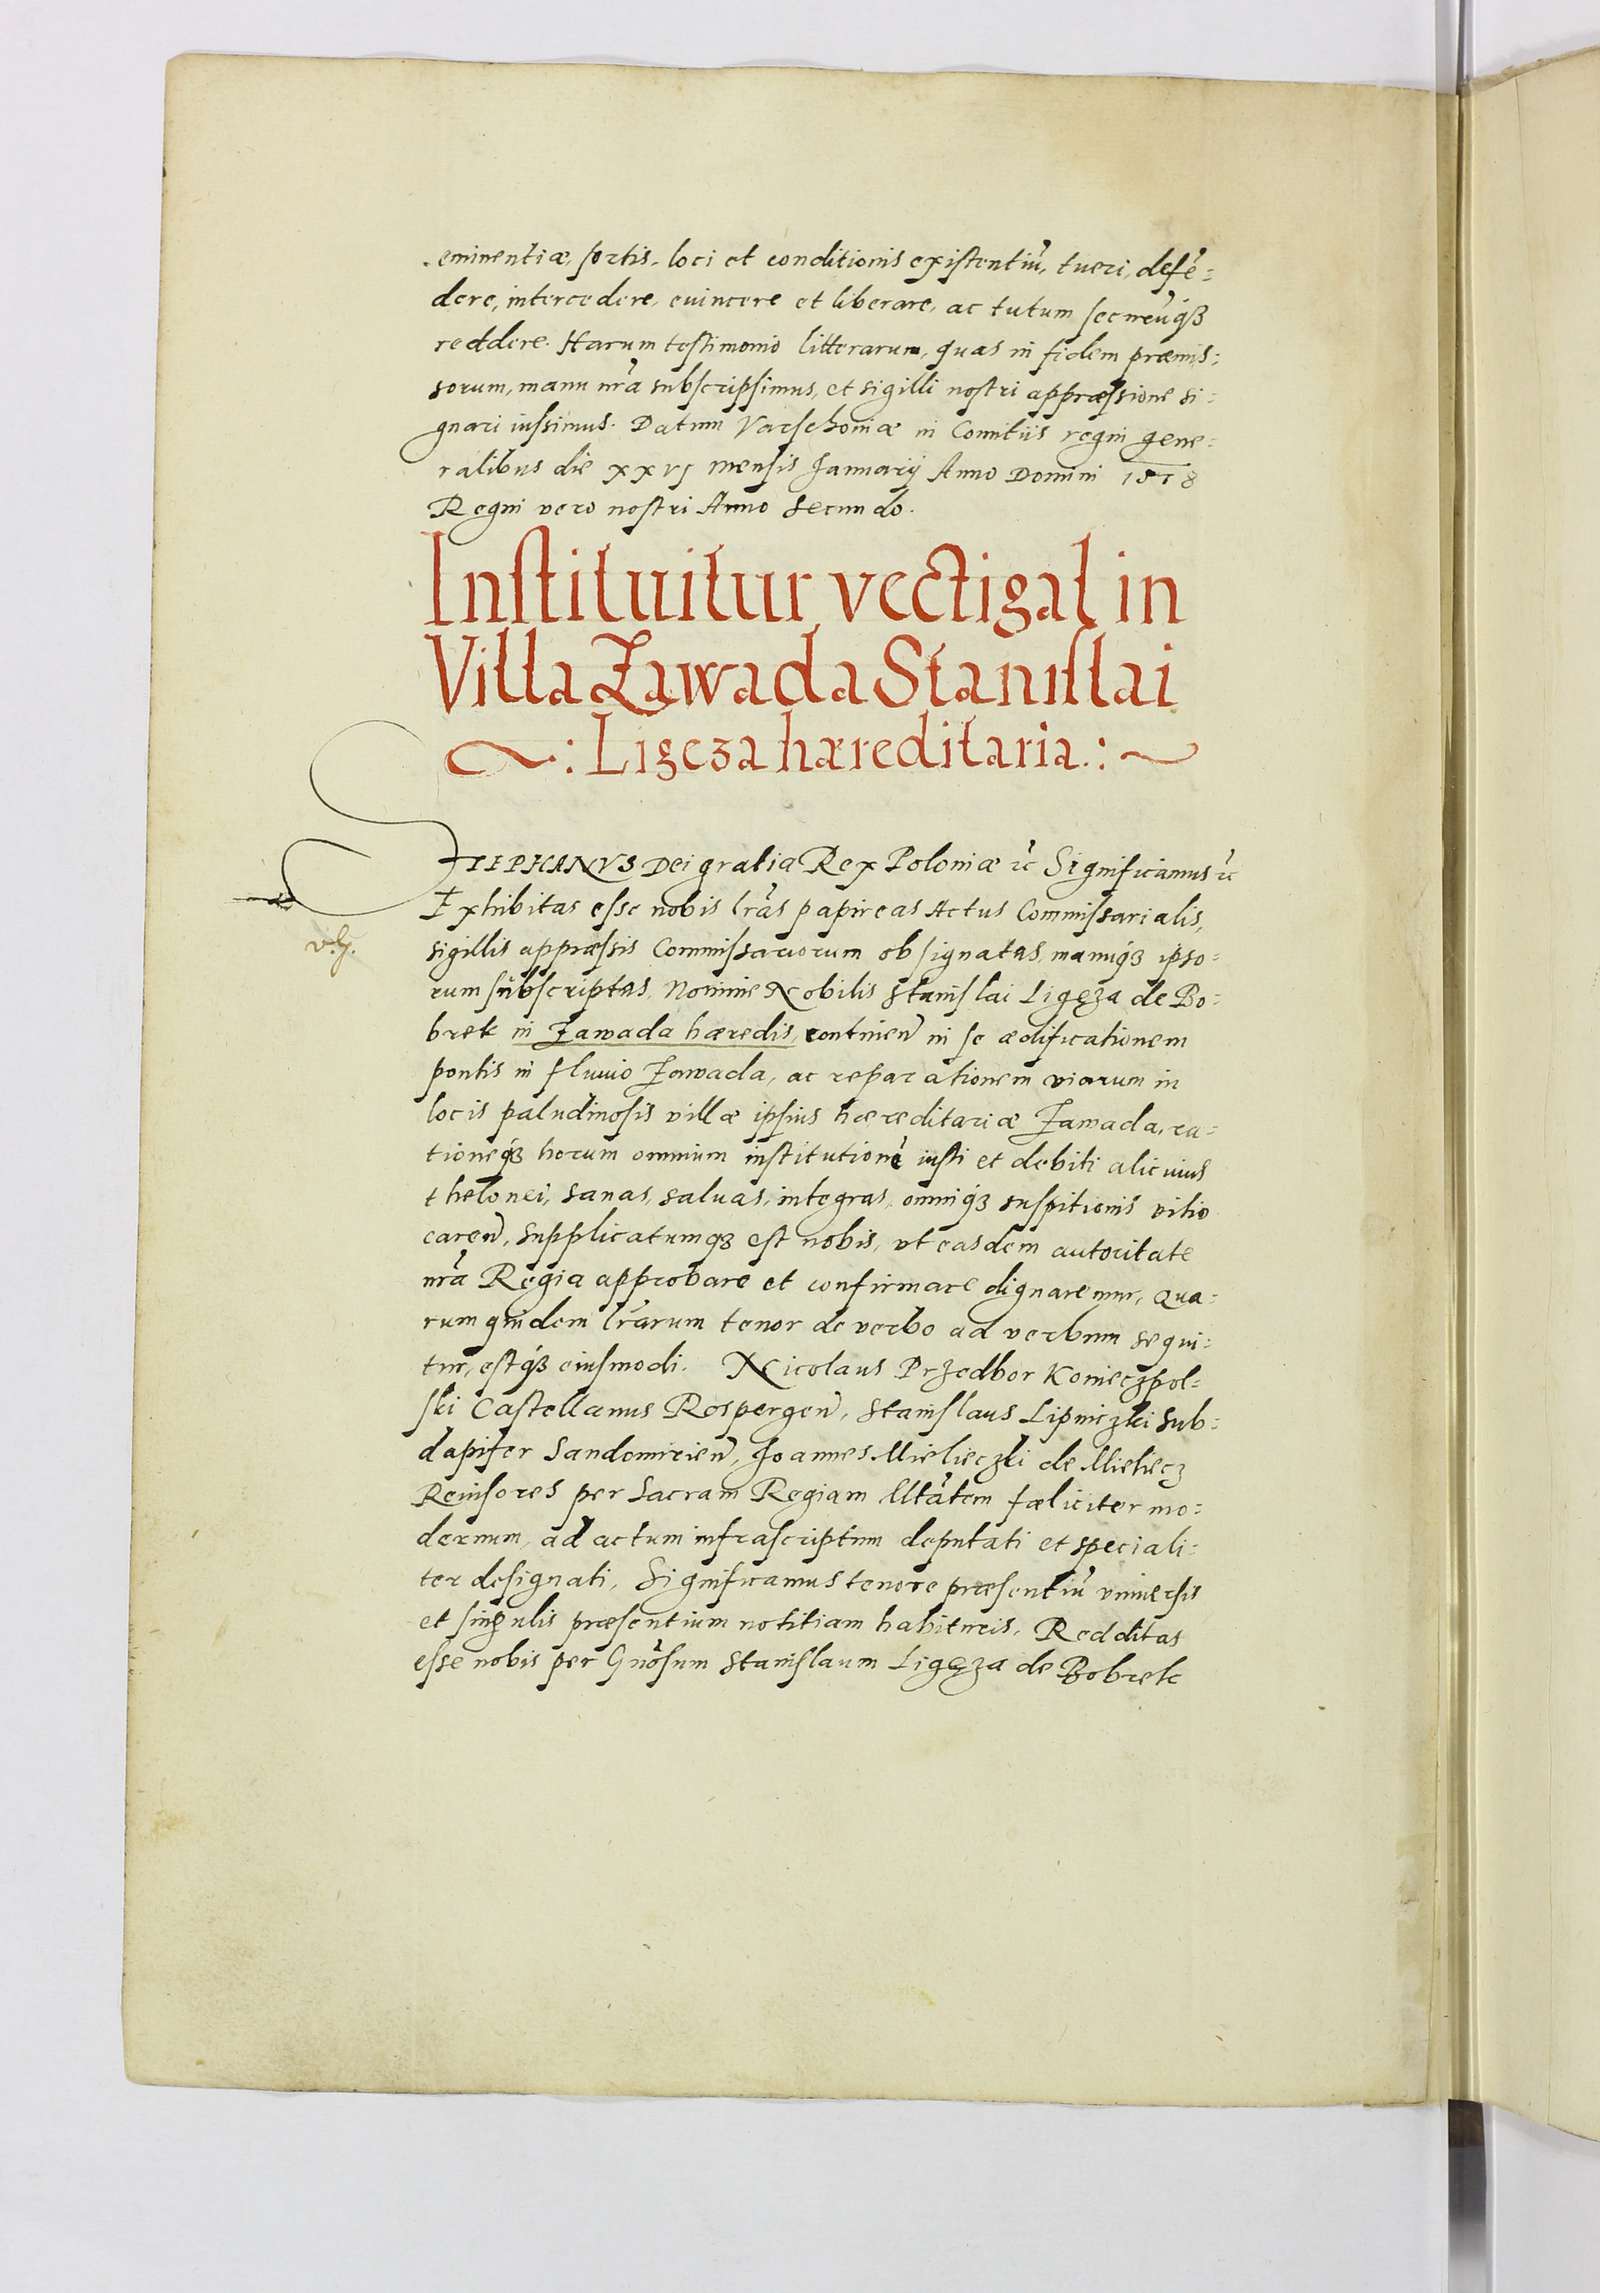 eminentiæ, sortis, loci et conditionis existentiū, tueri, defē-
dere, intercedere, euincere et liberare, ac tutum secureūqȝ
reddere. Harum testimonio litterarum, quas in fidem præmis-
sorum, manu nrā subscripsimus, et sigilli nostri appræssione si-
gnari iussimus. Datum Varschoniæ in Comitiis regni gene-
ralibus die XXVI mensis Januarij Anno Domini 1578
Regni vero nostri Anno Secundo.
Instituitur vectigal in
Villa Zawada Stanislai
Ligęza hæreditaria
STEPHANVS Dei gratia Rex Poloniæ ⁊c Significamus ⁊c
Exhibitas esse nobis lrās papireas Actus Commissarialis,
sigillis appræssis Commissariorum obsignatas, manuqȝ ipso-
rum subscriptas, Nomine Nobilis Stanislai Ligęza de Bo-
brek in Zawada hæredis, continen̄ in se ædificationem
pontis in fluuio Zawada, ac reparationem viarum in
locis paludinosis villæ ipsius hæreditariæ Zawada, ra-
tioneqȝ horum omnium institutionē iusti et debiti alicuius
thelonei, sanas, saluas, integras, omniqȝ suspitionis vitio
caren̄, Supplicatumqȝ est nobis, vt easdem autoritate
nrā Regia approbare et confirmare dignaremur, Qua-
rum quidem lrārum tenor de verbo ad verbum sequi-
tur, estqȝ eiusmodi. Nicolaus Przedbor Konieczpol-
ski Castellanus Rospergen̄, Stanislaus Lipniczki Sub-
dapifer Sandomirien̄, Joannes Mielieczki de Mieliecz
Reuisores per Sacram Regiam Mtātem fæliciter mo-
dernum, ad actum infrascriptum deputati et speciali-
ter designati, Significamus tenore præsentiū vniuersis
et singulis præsentium notitiam habituris, Redditas
esse nobis per Gnōsum Stanislaum Ligęza de Bobrek